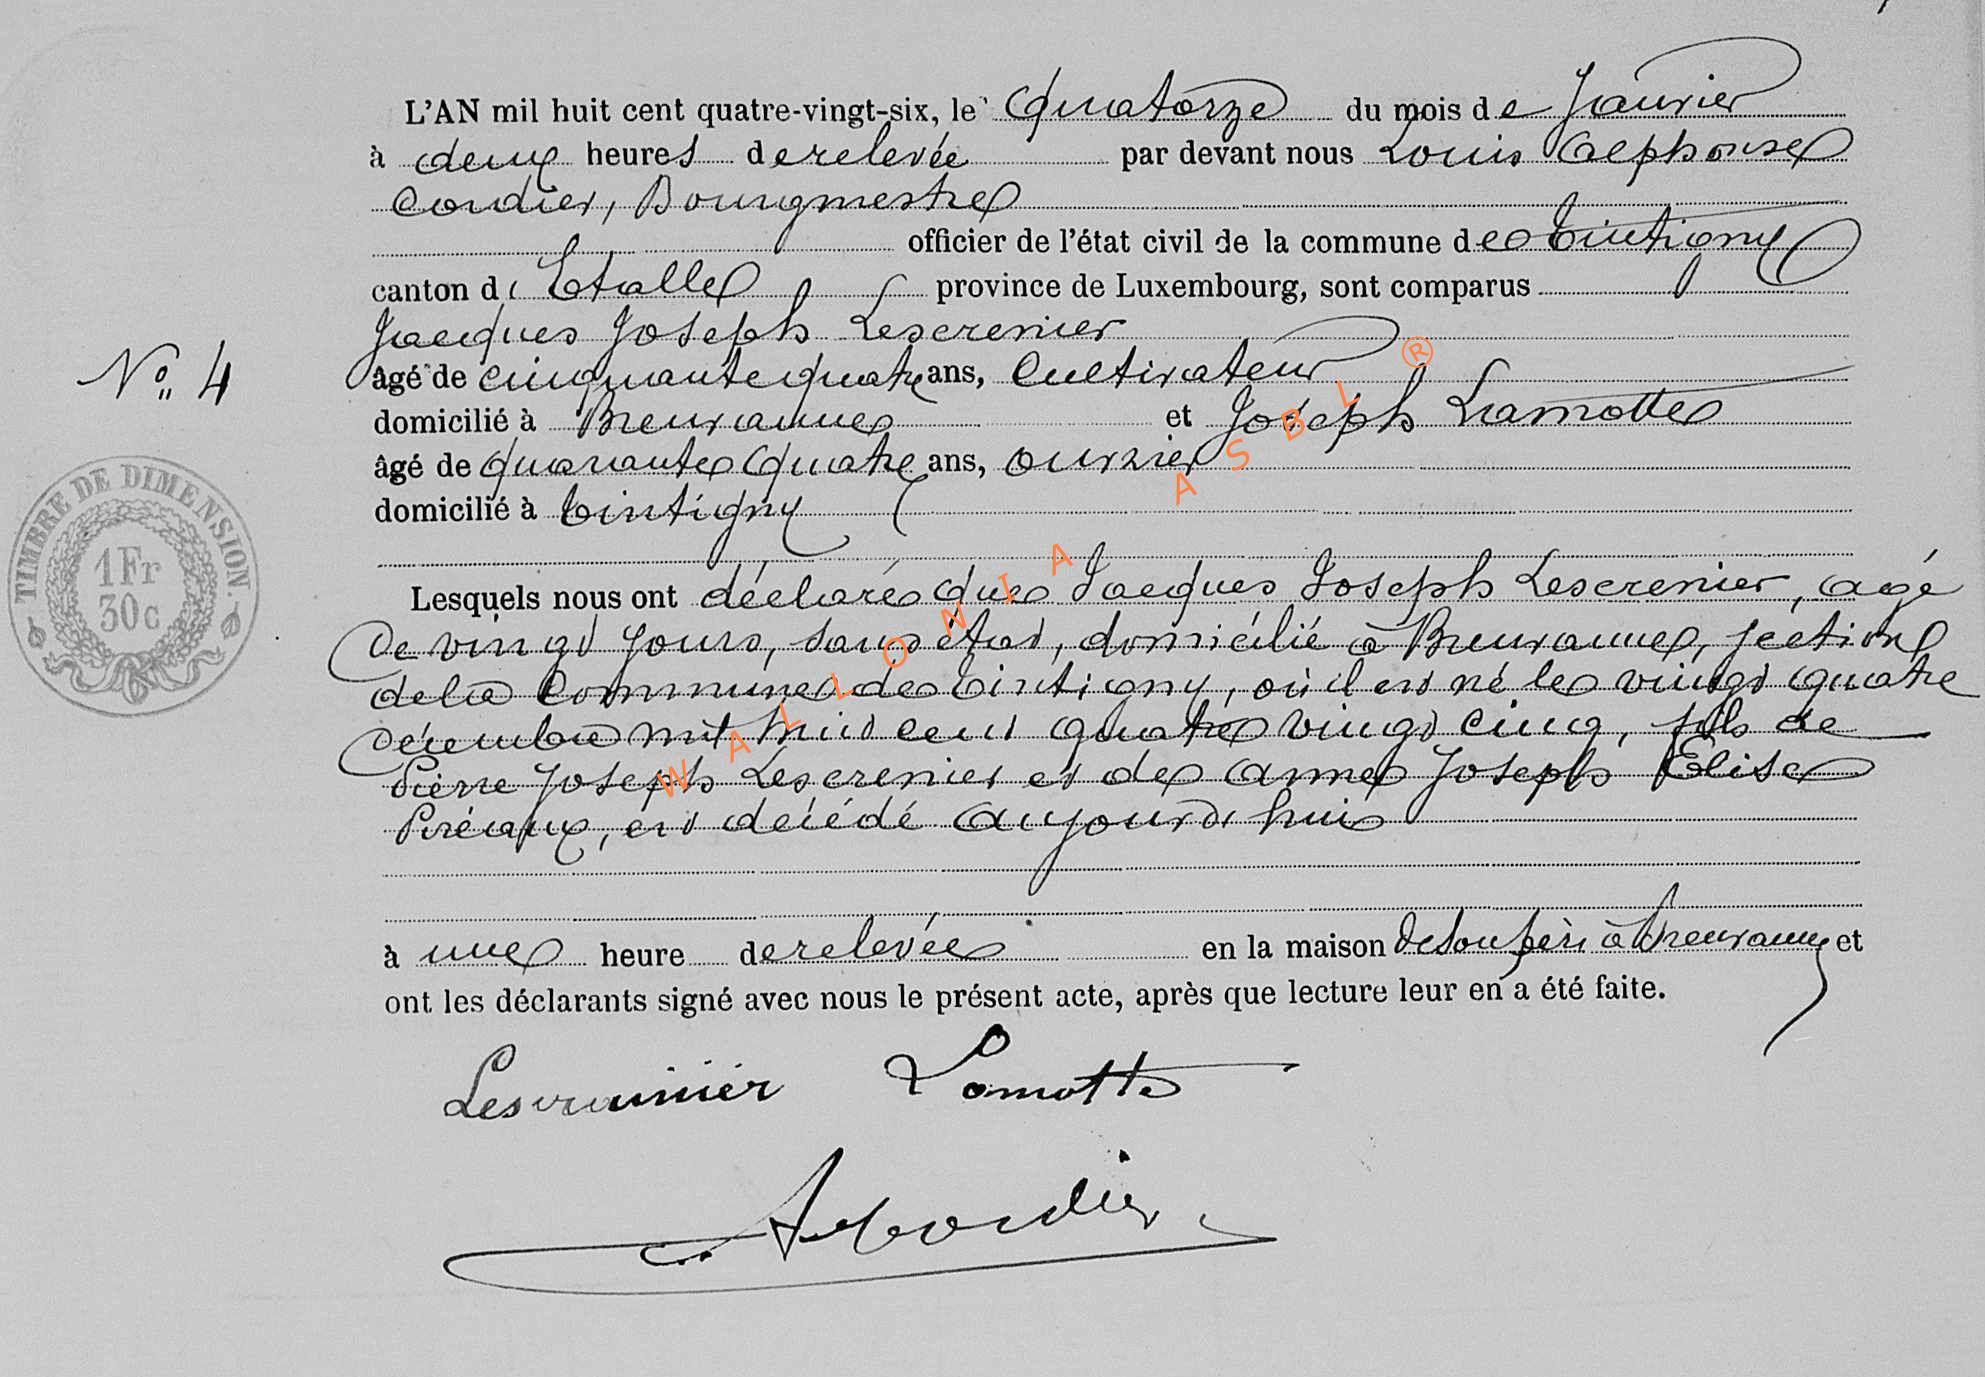 L'AN mil huit cent quatre-vingt-six, le Quatorze du mois de Janvier
à deux heures de relevée par devant nous Louis Alphonse
Cordier, Bourgmestre
officier de l'état civil de la commune de Tintigny
canton d'Etalle province de Luxembourg, sont comparus
Jacques Joseph Lescrenier
N° 4
âgé de cinquante quatre ans, Cultivateur
domicilié à Breuvanne et Joseph Lamotte
âgé de quarante quatre ans, ouvrier
domicilié à Tintigny
TIMBRE DE DIMENSION.
1 Fr
30 c
Lesquels nous ont déclaré que Jacques Joseph Lescrenier, agé
de vingt jours, sans état, domicilié à Breuvanne, section
de la Commune de Tintigny, où il est né le vingt quatre
Décembre mil huit cent quatre vingt cinq, fils de
Pierre Joseph Lescrenier et de Anne Joseph Elise
est décédé aujourd'hui
à une heure de relevée en la maison de son père à Breuvanne et
ont les déclarants signé avec nous le présent acte, après que lecture leur en a été faite.
Lamotte
Cordier
WALLONIA ASBL ®